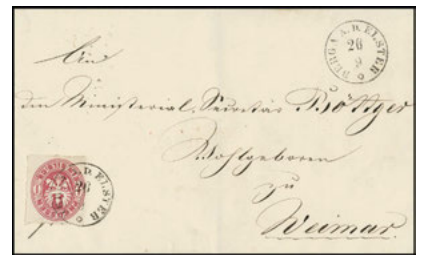 BERGA A. D. ELSTER
26
9
An
den Ministerial-Secretär Böttger
Wohlgeboren
zu
Weimar.
D. ELSTER
26